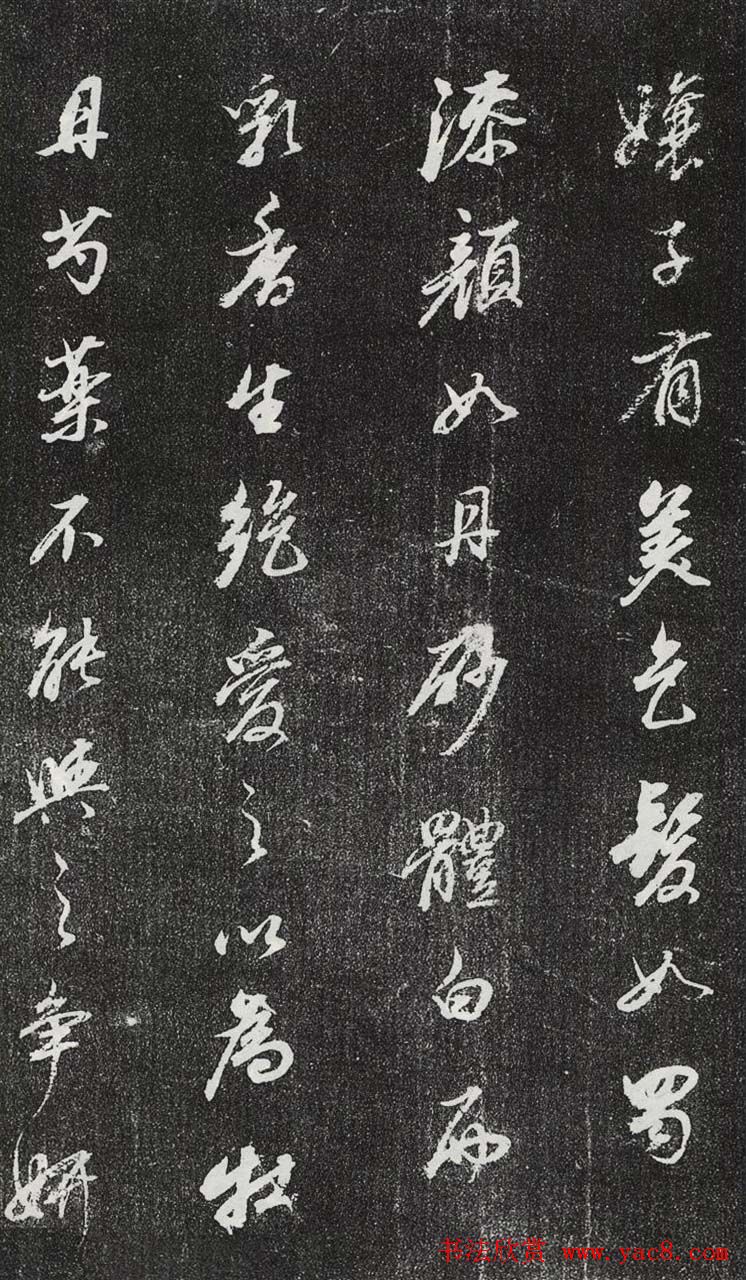 孃子有美色髮如蜀
漆顏如丹砂體白而
乳香生絕愛之以為牡
丹芍藥不能與之爭妍
书法欣赏 www.yac8.com